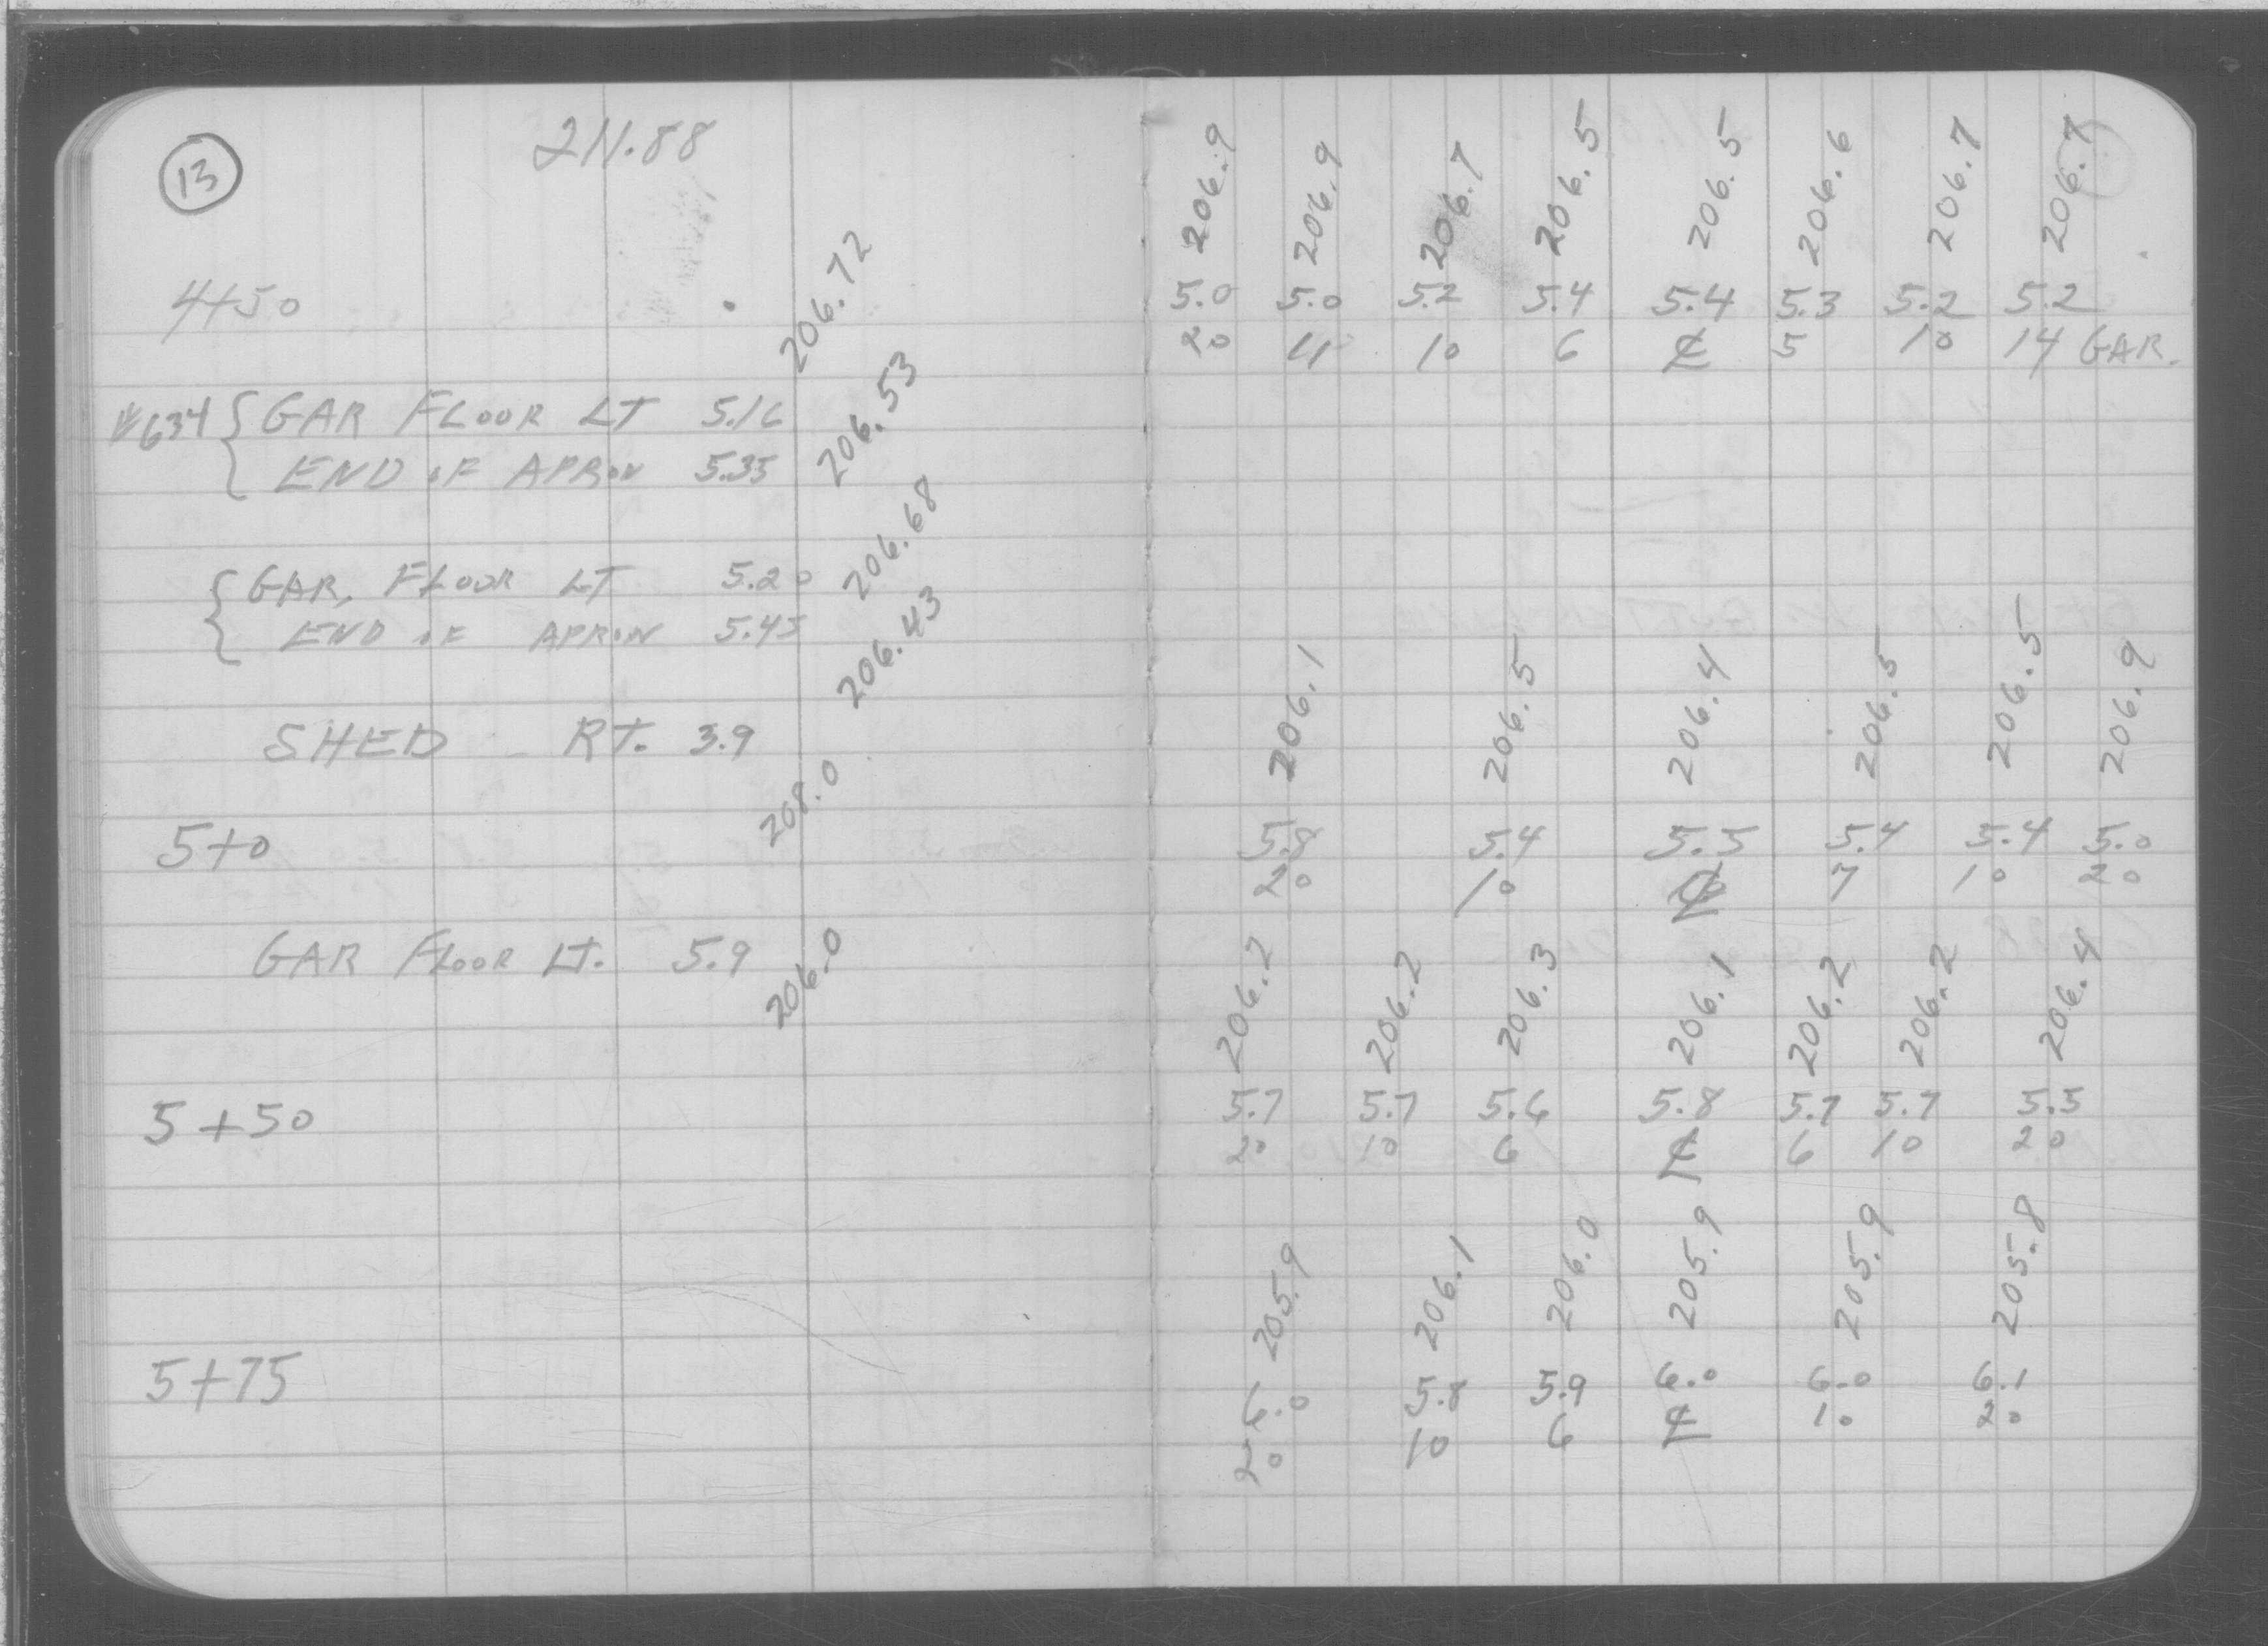 13
211.88
206.9 206.9 206.7 206.5 206.5 206.6 206.7 206.7
4+50 5.0 5.0 5.2 5.4 5.4 5.3 5.2 5.2
20 11 10 6 ℄ 5 10 14 GAR.
#634 { GAR FLOOR LT 5.16 206.72
END OF APRON 5.35 206.53
{ GAR. FLOOR LT 5.20 206.68
END OF APRON 5.45 206.43
SHED RT. 3.9 208.0
206.1 206.5 206.4 206.5 206.5 206.9
5+0 5.8 5.4 5.5 5.4 5.4 5.0
20 10 ℄ 7 10 20
GAR FLOOR LT. 5.9 206.0
206.2 206.2 206.3 206.1 206.2 206.2 206.4
5+50 5.7 5.7 5.6 5.8 5.7 5.7 5.5
20 10 6 ℄ 6 10 20
205.9 206.1 206.0 205.9 205.9 205.8
5+75 6.0 5.8 5.9 6.0 6.0 6.1
20 10 6 ℄ 10 20